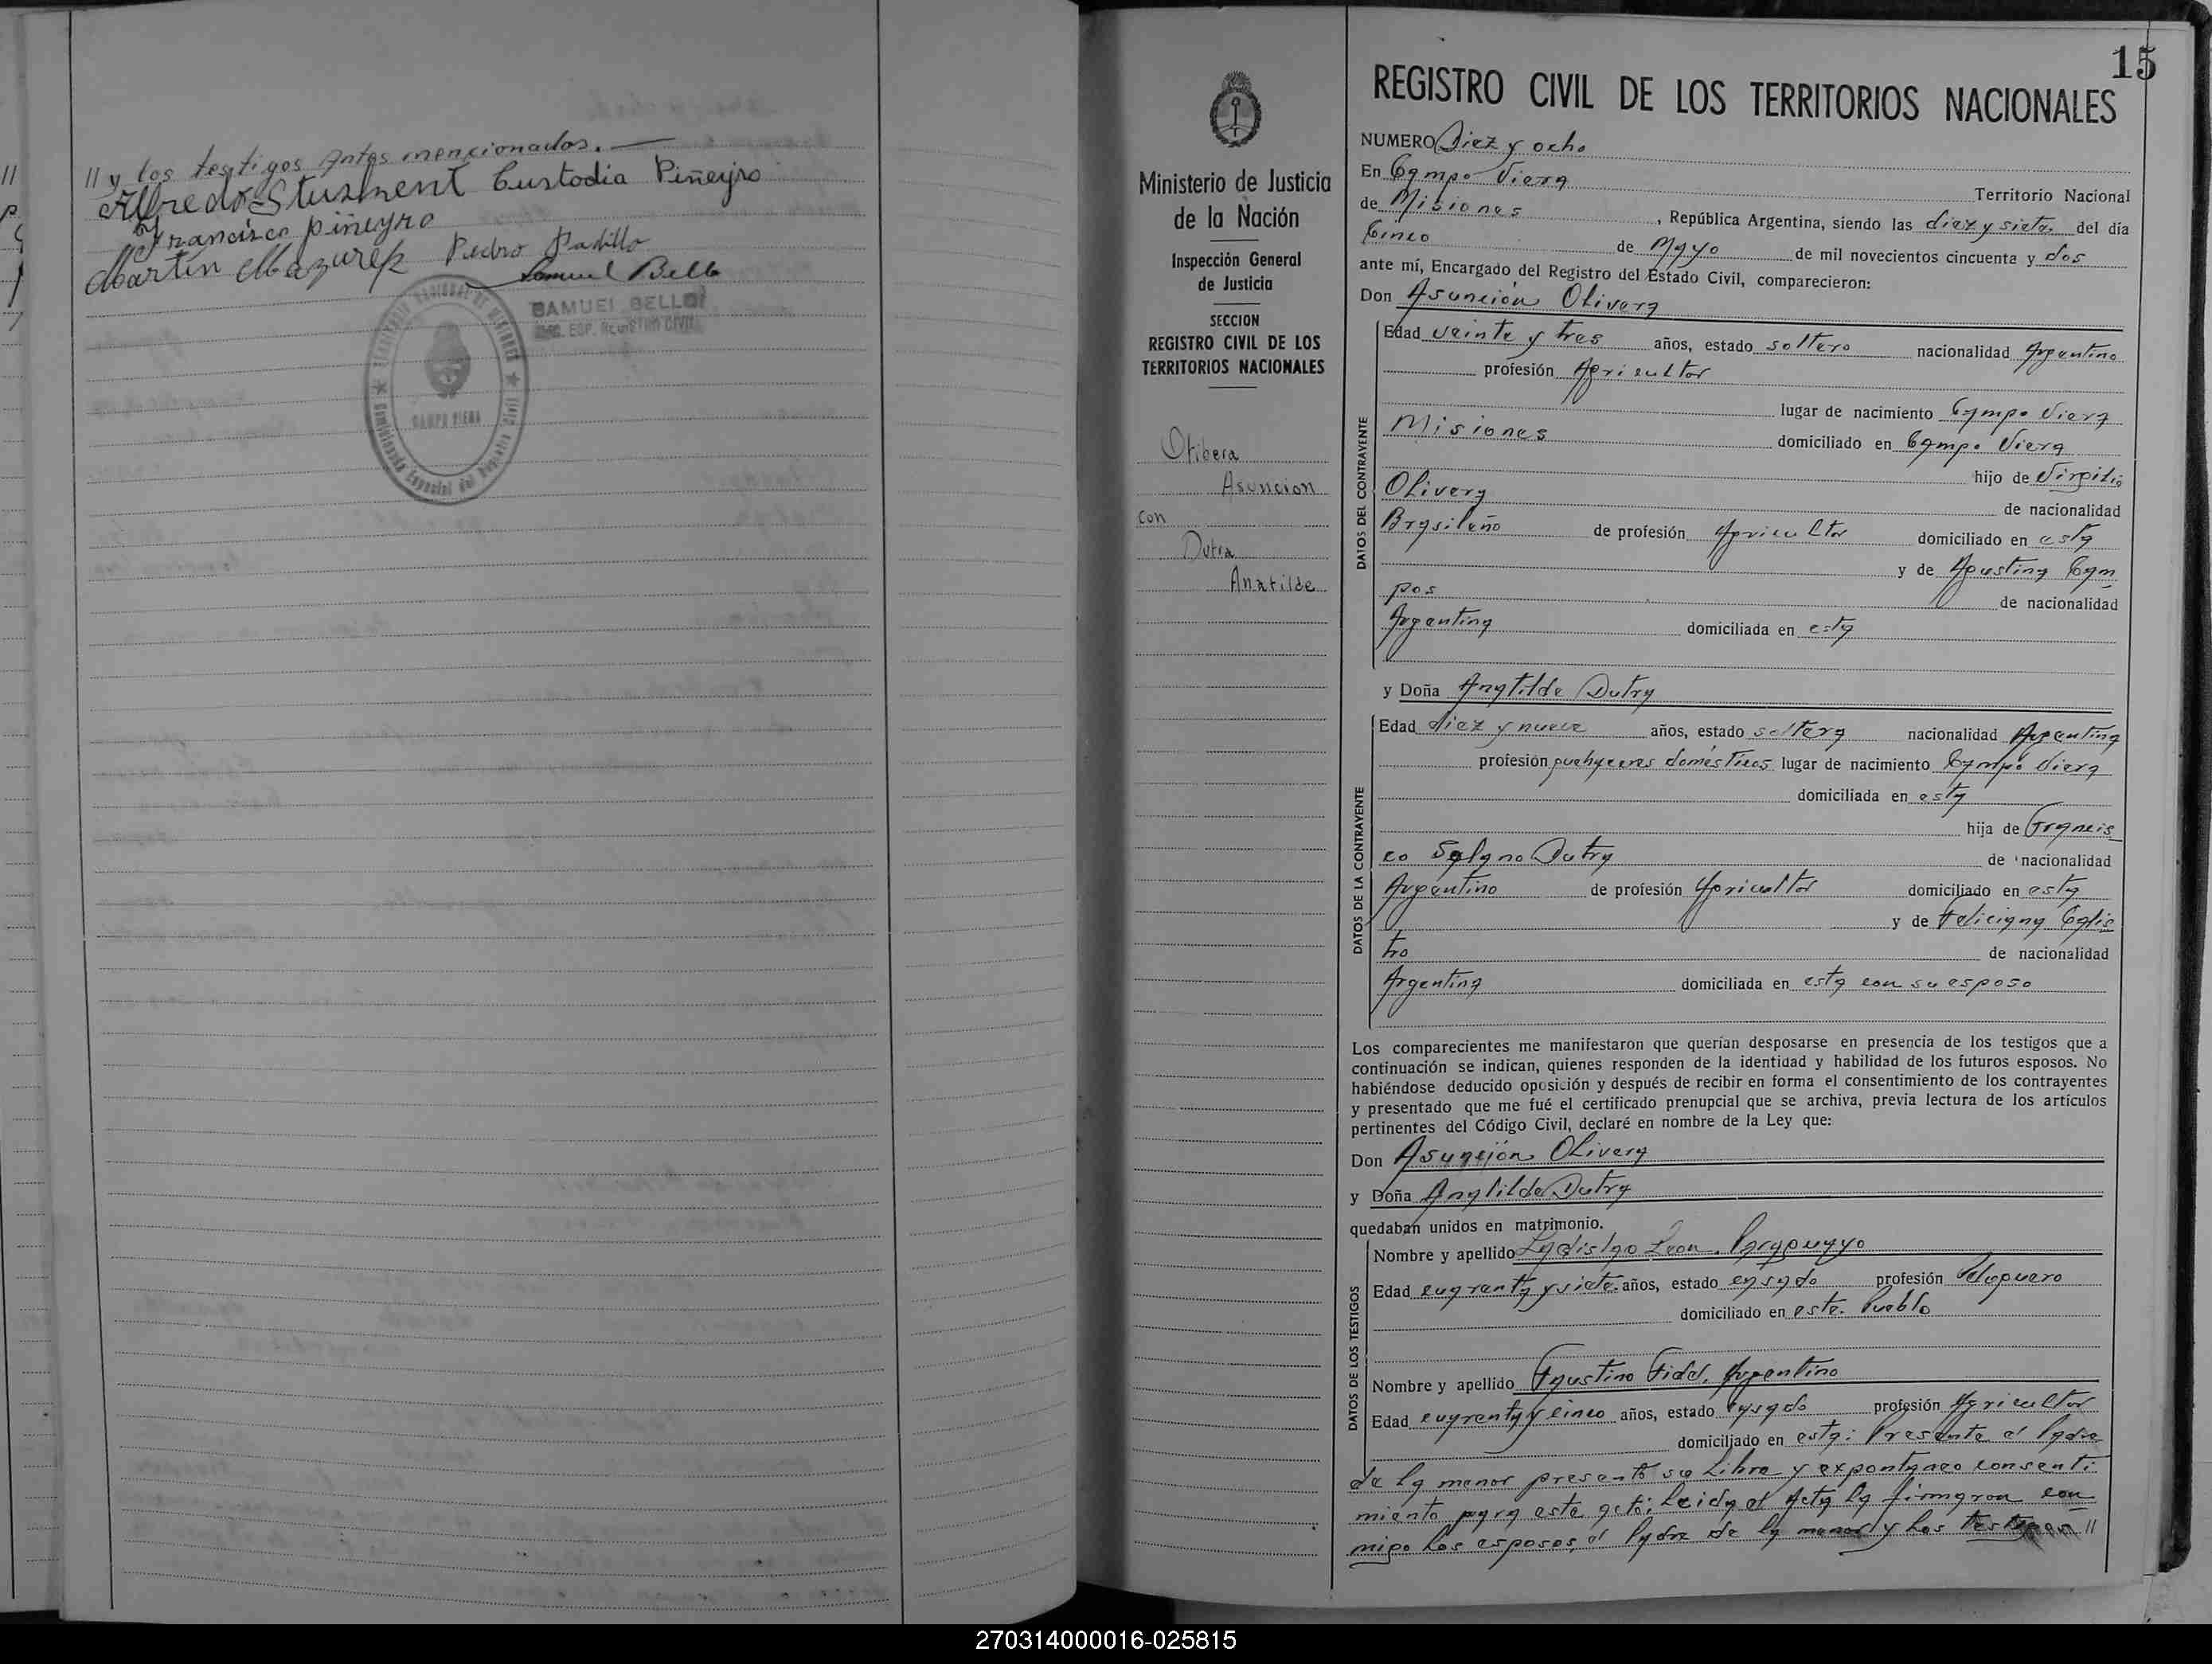 // y los testigos Antes mencionados.
Alfredo Stusment Custodia Piñeyro
Francisco piñeyro
Martin Mazurek Pedro Padillo
Samuel Bello
SAMUEL BELLO
ENC. ESP. REGISTRO CIVIL
TERRITORIO NACIONAL DE MISIONES
CAMPO VIERA
Comisionado Especial del Registro Civil
15
Ministerio de Justicia
de la Nación
Inspección General
de Justicia
SECCION
REGISTRO CIVIL DE LOS
TERRITORIOS NACIONALES
Olibera
Asuncion
con
Dutra
Anatilde
REGISTRO CIVIL DE LOS TERRITORIOS NACIONALES
NUMERO Diez y ocho
En Campo Viera
Territorio Nacional
de Misiones, República Argentina, siendo las diez y siete del día
Cinco de Mayo de mil novecientos cincuenta y dos
ante mí, Encargado del Registro del Estado Civil, comparecieron:
Don Asunción Olivera
DATOS DEL CONTRAYENTE
Edad veinte y tres años, estado soltero nacionalidad Argentino
profesión Agricultor
lugar de nacimiento Campo Viera
Misiones domiciliado en Campo Viera
hijo de Virgilio
Olivera de nacionalidad
Brasileño de profesión Agricultor domiciliado en esta
y de Agustina Cam
pos de nacionalidad
Argentina domiciliada en esta
y Doña Anatilde Dutra
DATOS DE LA CONTRAYENTE
Edad diez y nueve años, estado soltera nacionalidad Argentina
profesión quehaceres domésticos lugar de nacimiento Campo Viera
domiciliada en esta
hija de Francis
co Salano Dutra de nacionalidad
Argentino de profesión Agricultor domiciliado en esta
y de Feliciana Calis
tro de nacionalidad
Argentina domiciliada en esta con su esposo
Los comparecientes me manifestaron que querían desposarse en presencia de los testigos que a
continuación se indican, quienes responden de la identidad y habilidad de los futuros esposos. No
habiéndose deducido oposición y después de recibir en forma el consentimiento de los contrayentes
y presentado que me fué el certificado prenupcial que se archiva, previa lectura de los artículos
pertinentes del Código Civil, declaré en nombre de la Ley que:
Don Asunción Olivera
y Doña Anatilde Dutra
quedaban unidos en matrimonio.
DATOS DE LOS TESTIGOS
Nombre y apellido Ladislao Leon. Paraguayo
Edad cuarenta y siete años, estado casado profesión Peluquero
domiciliado en este Pueblo
Nombre y apellido Faustino Fidel, Argentino
Edad cuarenta y cinco años, estado casado profesión Agricultor
domiciliado en esta: Presente el Padre
de la menor presento su Libre y expontaneo consenti-
miento para este acto: Leida el Acta la firmaron con
migo los esposos, el Padre de la menor y los //
270314000016-025815